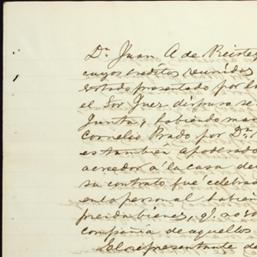 Dn. Juan A de
cuyos creditos reunidos
votado presentado por
el Sor Juez dispuso se
Junta, habiendo
Cornelio Prado por Dn.
es tambien apoderado
acreedor á la casa de
su contrato fué celebrad
ento personal habien
compañia de aquellos
El representante de